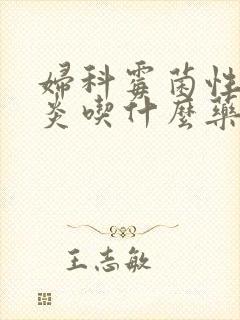 婦科霉菌性
炎喫什麼藥
王志敏